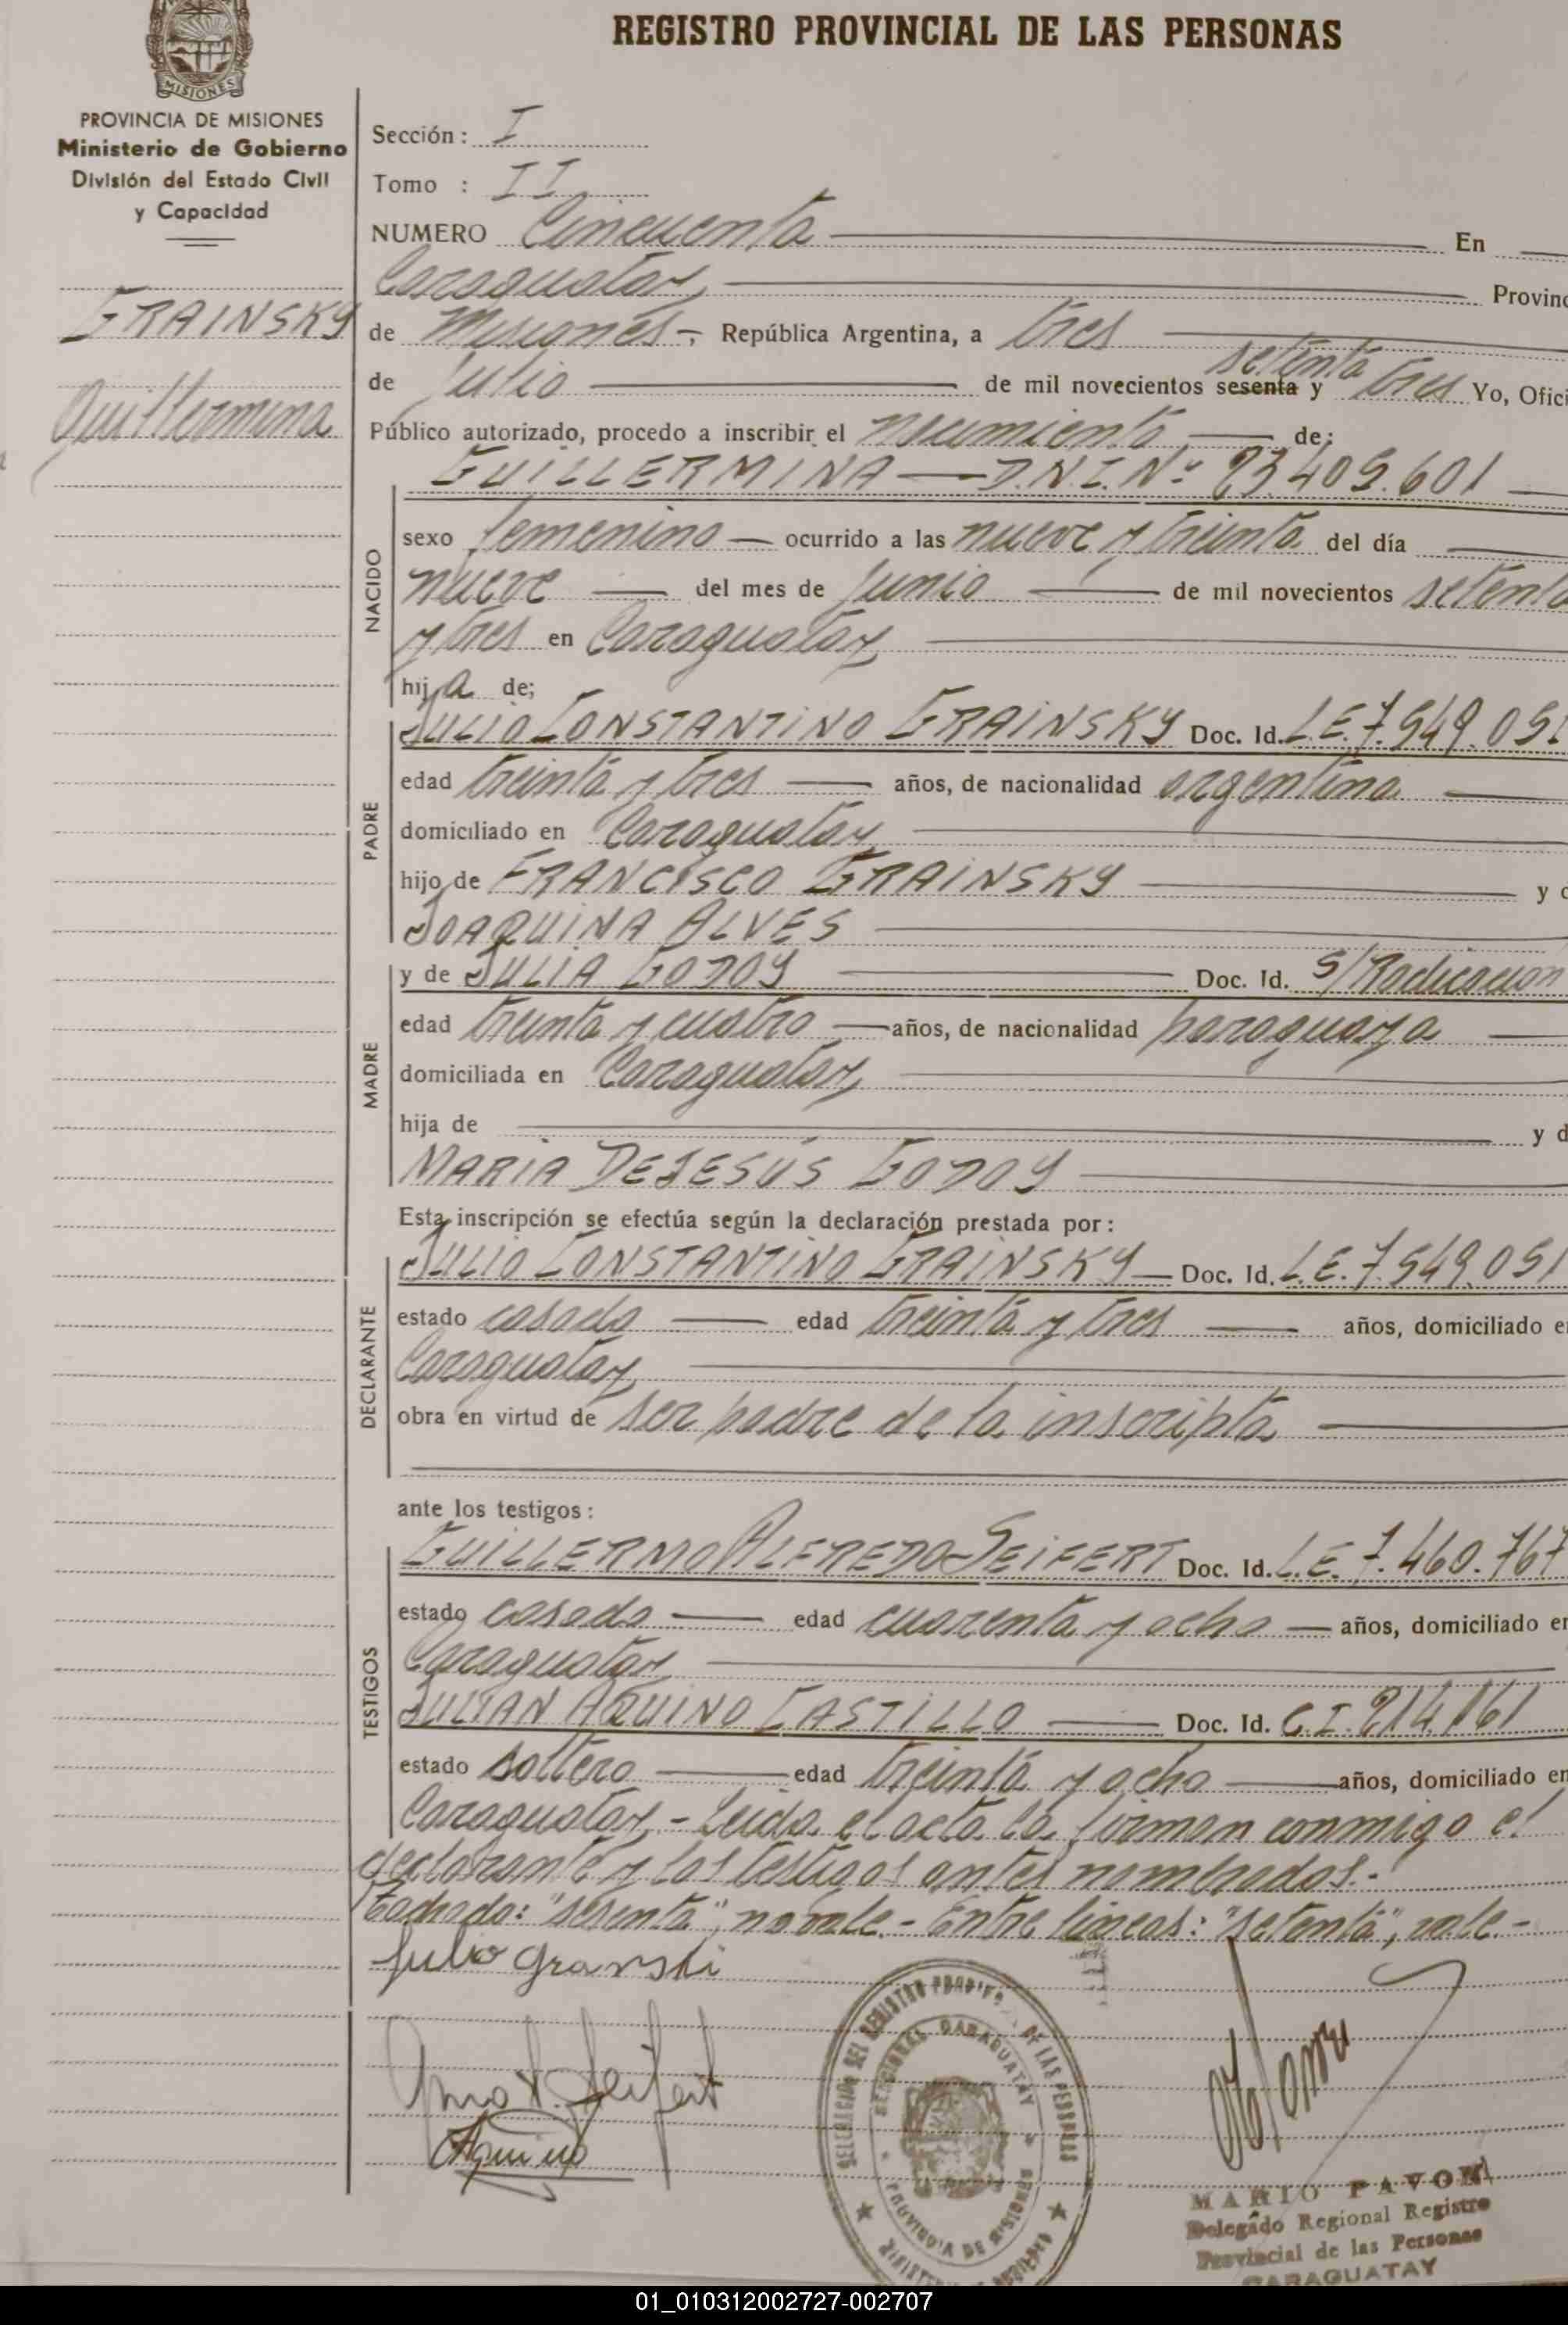 REGISTRO PROVINCIAL DE LAS PERSONAS
MISIONES
PROVINCIA DE MISIONES
Ministerio de Gobierno
División del Estado Civil
y Capacidad
GRAINSKY
Guillermina
Sección: I
Tomo : II
NUMERO Cincuenta En
Caraguatay Provinc
de Misiones - República Argentina, a tres
setenta
de Julio de mil novecientos sesenta y tres Yo, Ofici
Público autorizado, procedo a inscribir el nacimiento de:
GUILLERMINA — D.N.I. Nº 23.409.601
NACIDO
sexo femenino — ocurrido a las nueve y treinta del día
nueve del mes de Junio de mil novecientos setenta
y tres en Caraguatay
hija de;
PADRE
JULIO CONSTANTINO GRAINSKY Doc. Id. L.E. 7.549.051
edad treinta y tres años, de nacionalidad argentina
domiciliado en Caraguatay
hijo de FRANCISCO GRAINSKY y d
JOAQUINA ALVES
MADRE
y de JULIA GODOY Doc. Id. S/Radicacion
edad treinta y cuatro — años, de nacionalidad paraguaya
domiciliada en Caraguatay
hija de y d
MARIA DEJESÚS GODOY
Esta inscripción se efectúa según la declaración prestada por:
DECLARANTE
JULIO CONSTANTINO GRAINSKY — Doc. Id. L.E. 7.549.051
estado casado edad treinta y tres años, domiciliado en
Caraguatay
obra en virtud de ser padre de la inscripta
ante los testigos:
TESTIGOS
GUILLERMO ALFREDO SEIFERT Doc. Id. L.E. 7.460.767
estado casado edad cuarenta y ocho — años, domiciliado en
Caraguatay
JULIAN AQUINO CASTILLO Doc. Id. C.I. 214.161
estado soltero edad treinta y ocho años, domiciliado en
Caraguatay - Leída el acta la firman conmigo el
declarante y los testigos antes nombrados.-
Tachado: "sesenta", no vale.- Entre líneas: "setenta", vale.-
Julio Granski
Gmo A. Seifert
Aquino
SECCIONAL CARAGUATAY
PROVINCIA DE MISIONES
MARIO PAVON
Delegado Regional Registro
Provincial de las Personas
CARAGUATAY
01_010312002727-002707